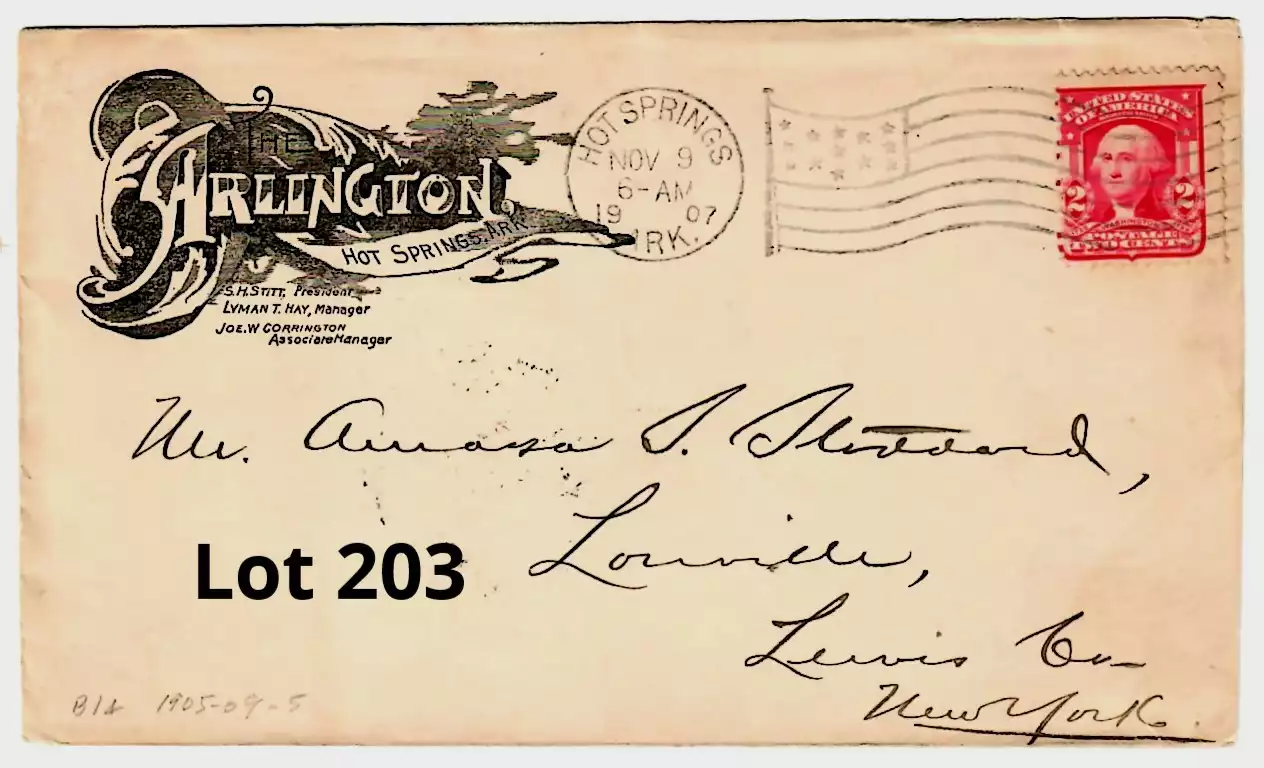 THE
ARLINGTON,
HOT SPRINGS, ARK.
S.H. STITT, President
LYMAN T. HAY, Manager
JOE. W CORRINGTON
Associate Manager
HOT SPRINGS
NOV 9
6-AM
19 07
ARK.
UNITED STATES
OF AMERICA
2 2
WASHINGTON
POSTAGE
TWO CENTS
Mr. Amasa S. Stoddard,
Lowville,
Lewis Co
New York.
Lot 203
B14 1905-09-5